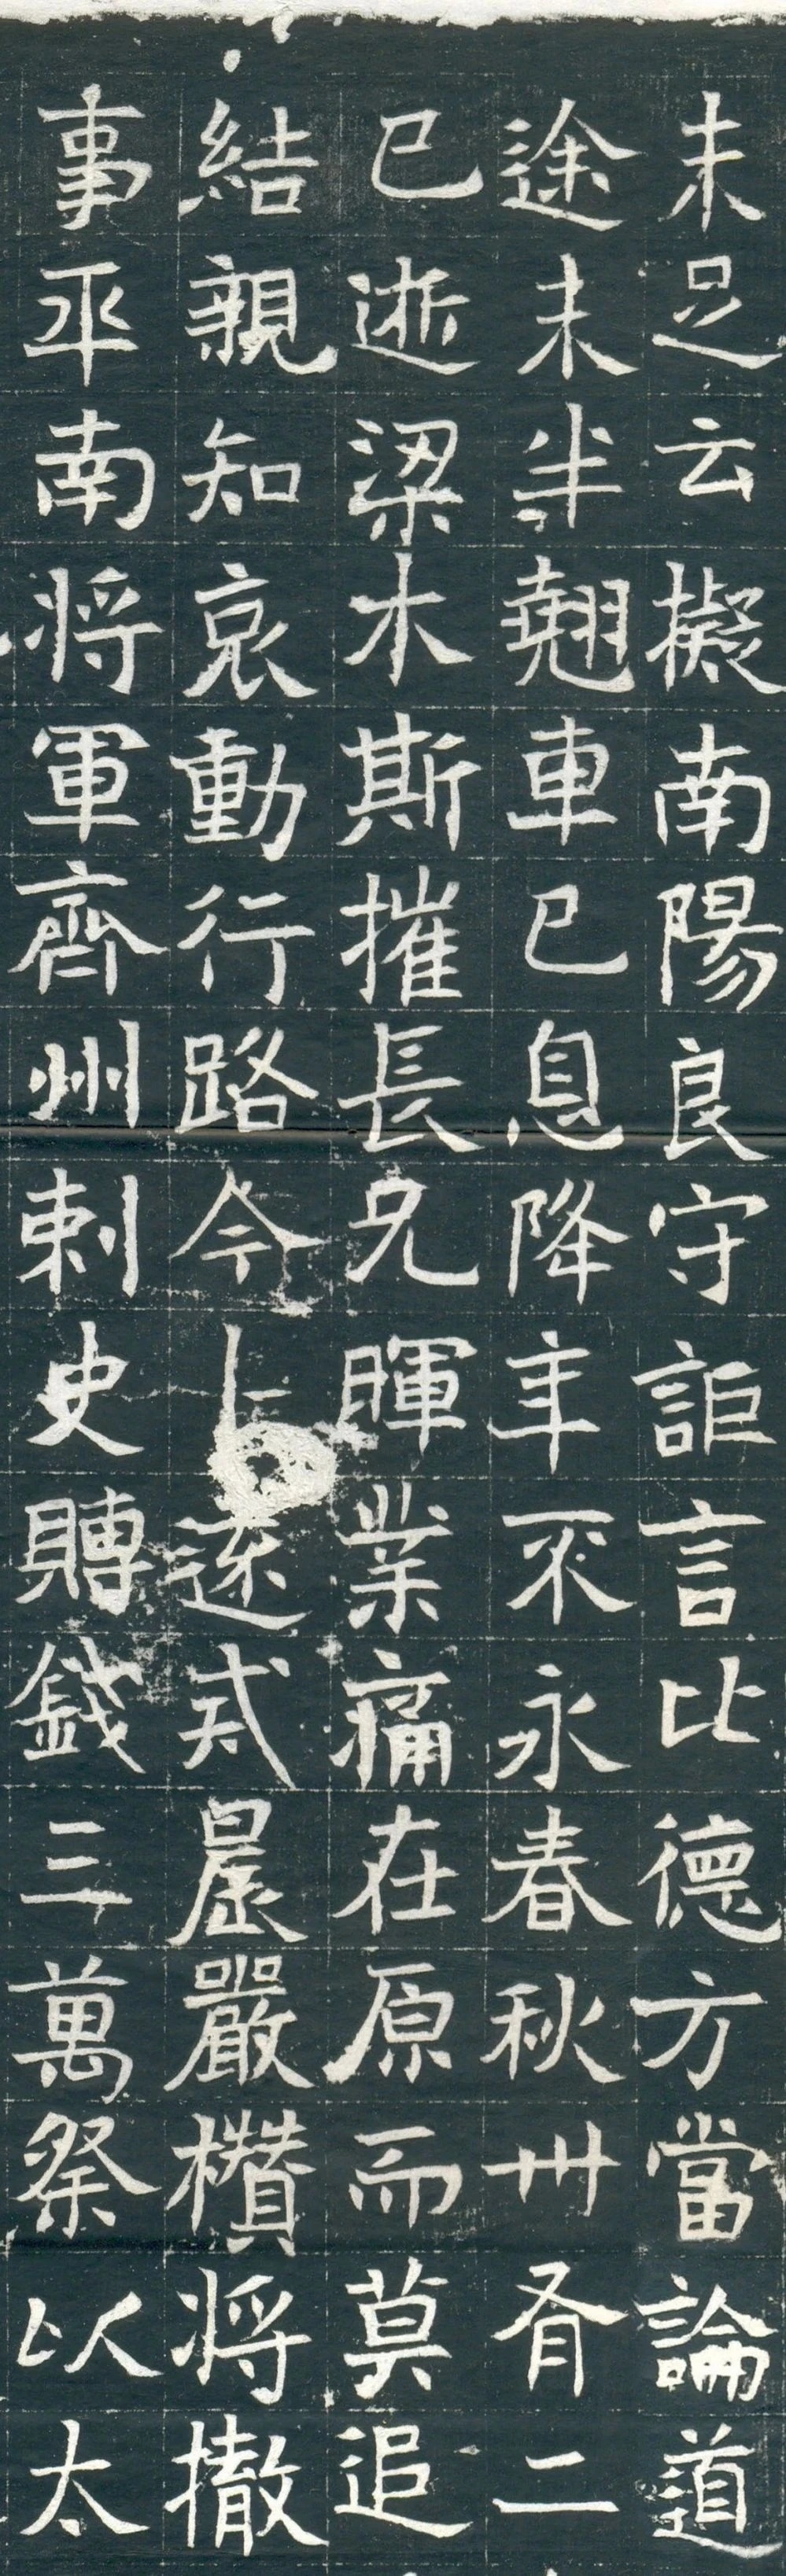 未足云擬南陽良守詎言比德方當論道
途未半翹車已息降年不永春秋卌有二
已逝梁木斯摧長兄暉業痛在原而莫追
結親知哀動行路今上遂式晨嚴欑將撤
事平南將軍齊州刺史賻錢三萬祭以太